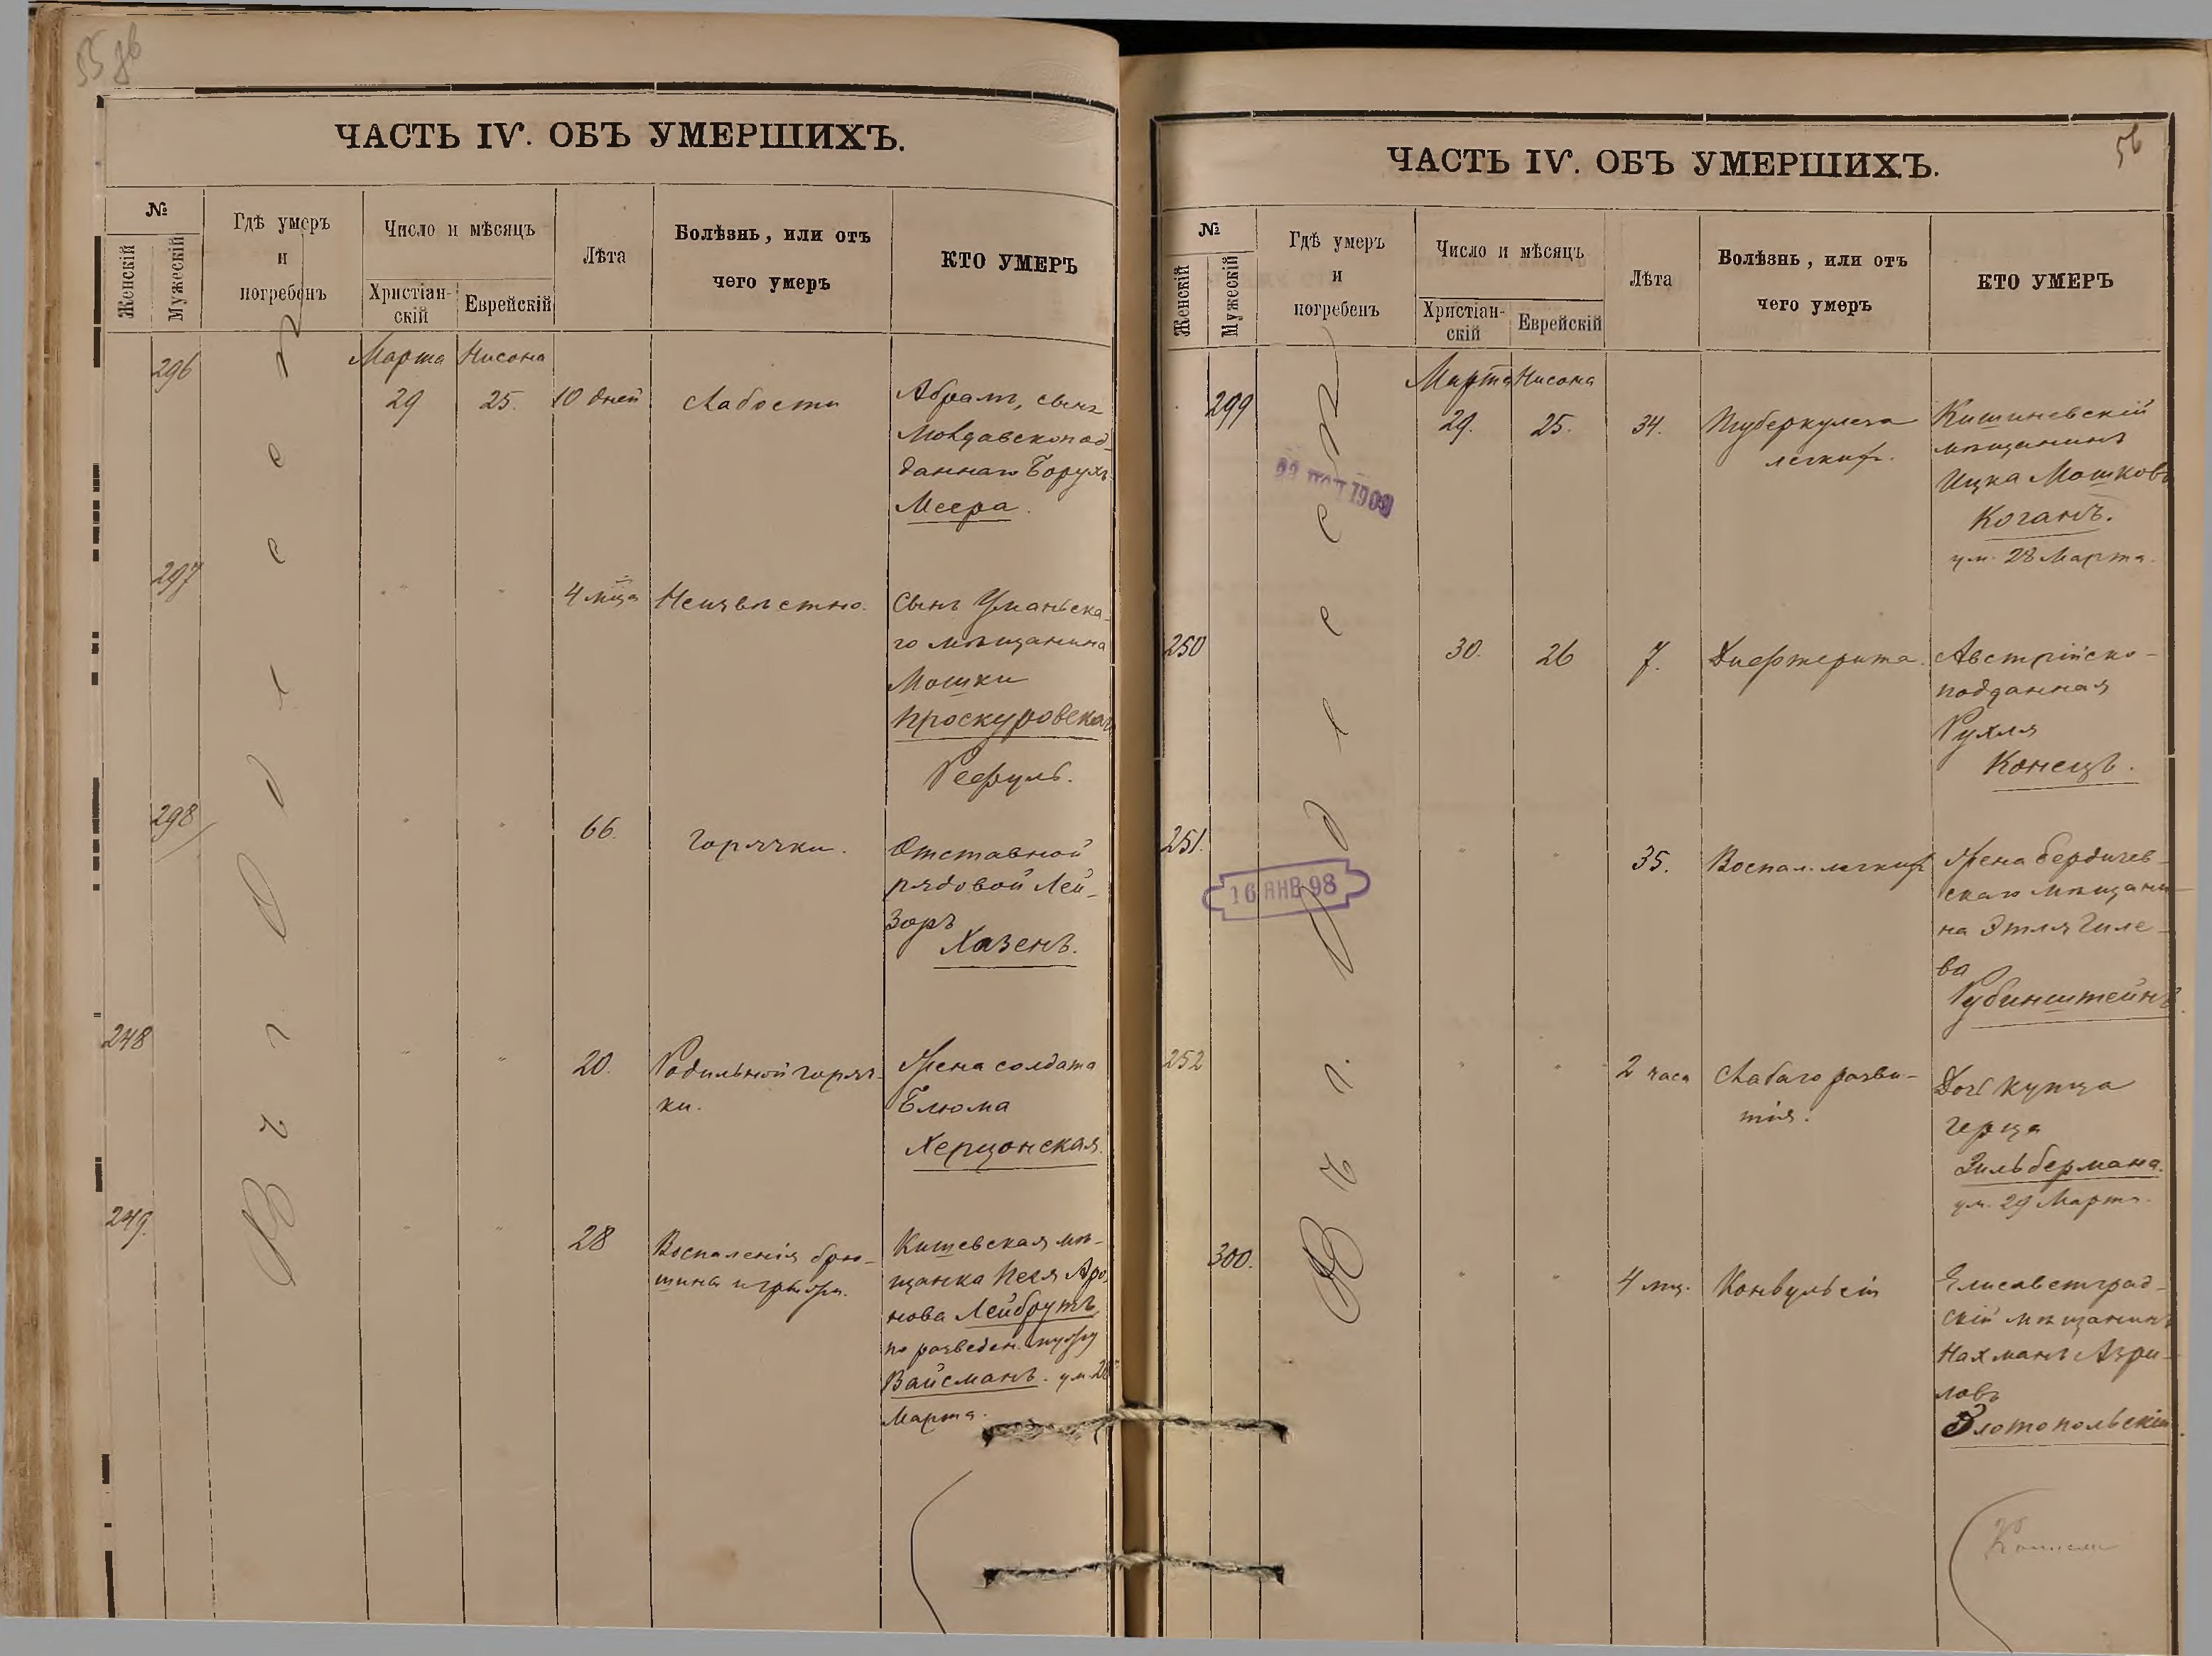 ЧАСТЬ IV. ОБЪ УМЕРШИХЪ.
№
Женскій
Мужескій
Гдѣ умеръ
и
погребенъ
Число и мѣсяцъ
Христіан-
скій
Еврейскій
Лѣта
Болѣзнь, или отъ
чего умеръ
КТО УМЕРЪ
Въ г. Одессѣ
Марта Нисона
296 29 25. 10 дней слабости
Абрамъ, сынъ
Молдавскопод-
даннаго Борухъ
Меера.
297 4 мца Неизвѣстно.
сынъ Уманьска-
го мѣщанина
Мошки
Проскуровскаго
298 66. горячки.
Отставной
рядовой Лей-
зоръ
Хазенъ.
248 20. Родильной горяч-
ки.
Жена солдата
Блюма
Херсонская.
249. 28 Воспаленія брю-
шины
мѣ-
щанка Песя Аро-
нова Лейбрутъ,
по разведен. мужу
Вайсманъ. ум. 28
Марта.
56
ЧАСТЬ IV. ОБЪ УМЕРШИХЪ.
№
Женскій
Мужескій
Гдѣ умеръ
и
погребенъ
Число и мѣсяцъ
Христіан-
скій
Еврейскій
Лѣта
Болѣзнь, или отъ
чего умеръ
КТО УМЕРЪ
Въ г. Одессѣ
Марта Нисона
299 29. 25. 34. Туберкулеза
легкихъ.
Кишиневскій
мѣщанинъ
Ицка Мошковъ
Коганъ.
ум. 28 Марта.
250 30. 26 7. Дифтерита.
Австрійско-
подданная
Рухля
Конецъ.
251. 35. Воспал. легкихъ
16 ЯНВ 98
Жена бердичев-
скаго мѣщани-
на Этля Гиле-
ва
Рубинштейнъ
252 2 часа слабаго разви-
тія.
Дочь купца
Герца
Зильбермана.
ум. 29 Марта.
300. 4 мц. Конвульсій
Елисаветград-
скій мѣщанинъ
Нахманъ Азри-
ловъ
Злотопольскій.